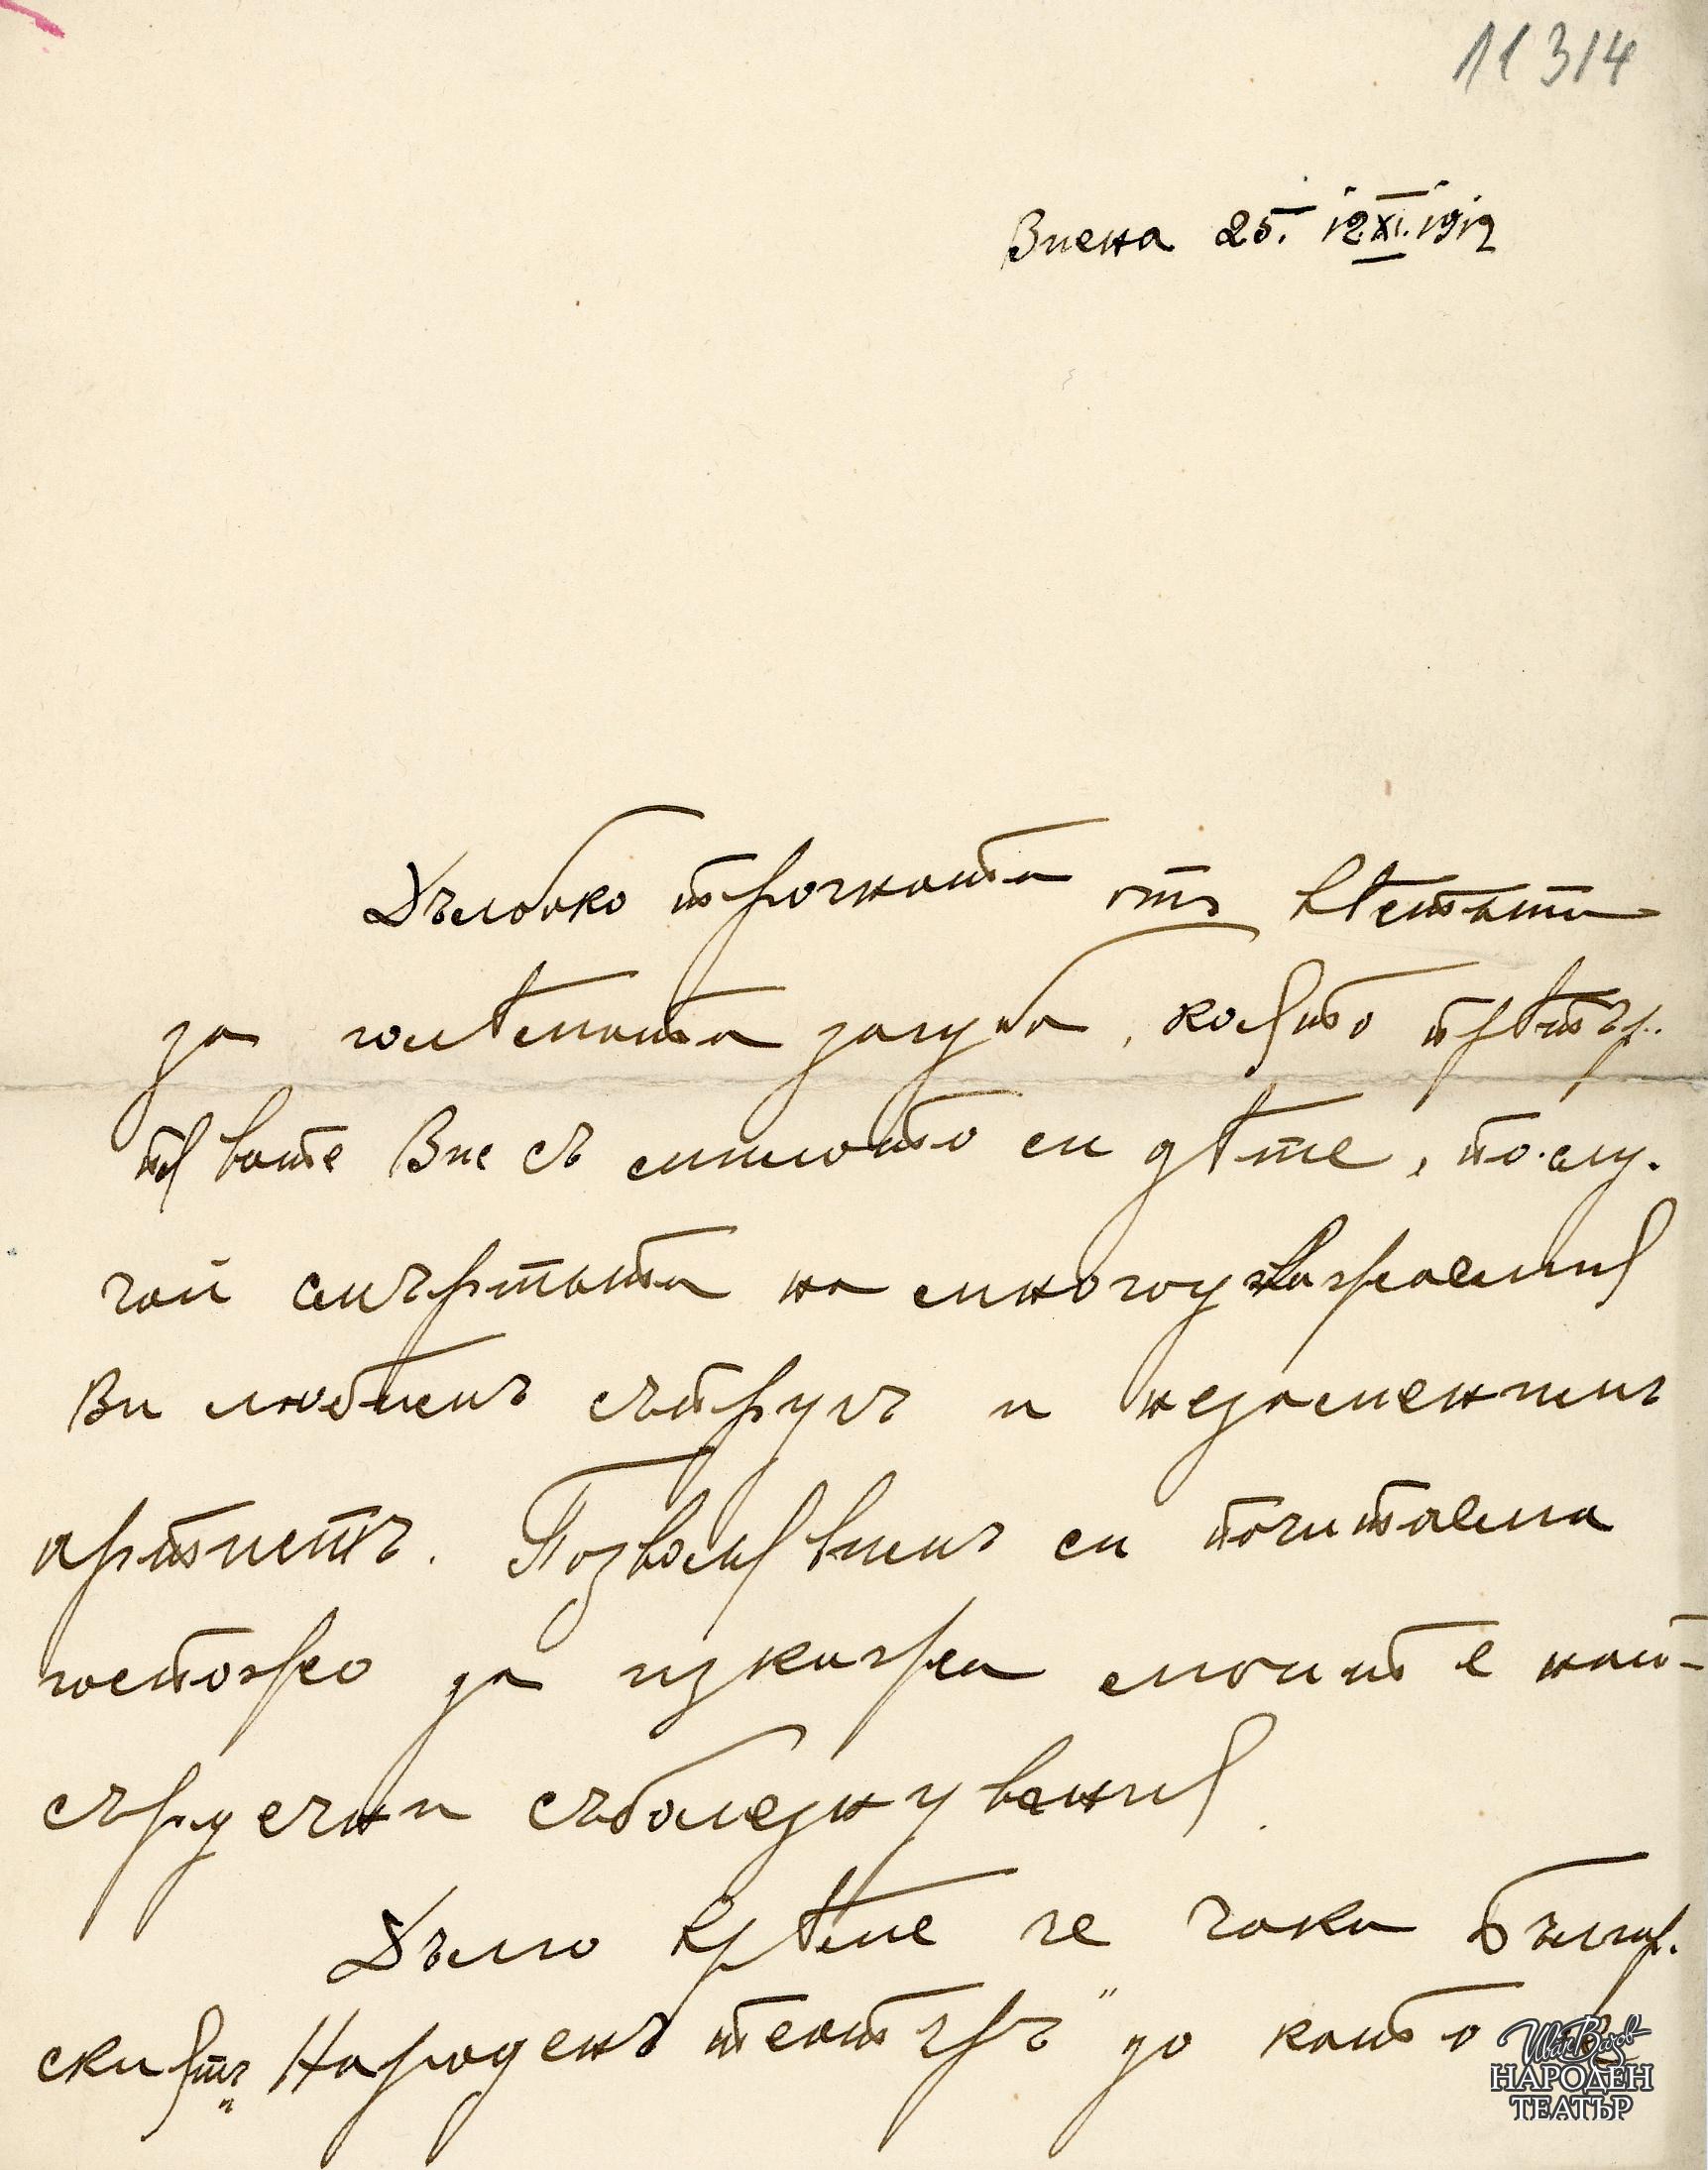 11314
Виена 25. 12.XI.1912
Дълбоко трогната отъ вѣстьта
за голѣмата загуба, която прѣтър.
пявате Вие съ милото си дѣте, по слу.
чай смъртьта на многоуважаемия
Ви любимъ съпругъ и незаменимъ
артистъ. Позволявамъ си почитаема
госпожо да изкажа моите най-
сърдечни съболезнувания.
Дълго врѣме че чака Българ.
скиятъ „Народенъ театъръ" до като
Иван Вазов
НАРОДЕН
ТЕАТЪР